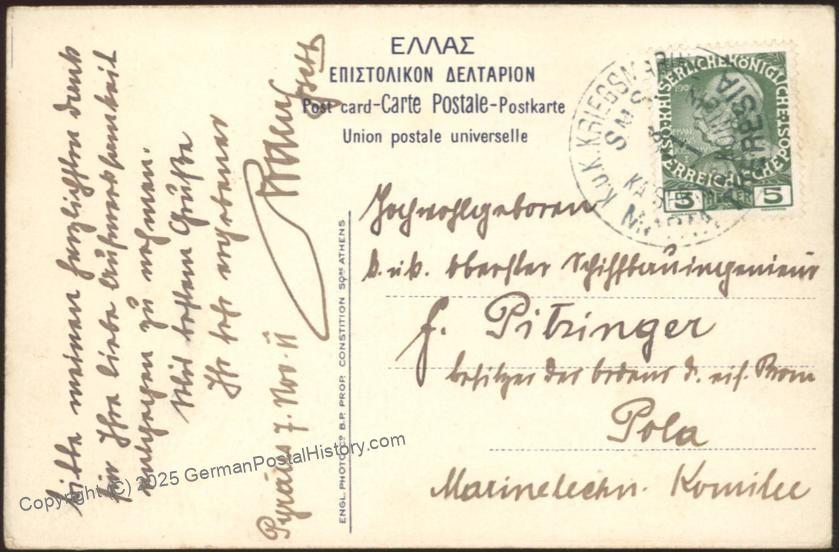 ΕΛΛΑΣ
ΕΠΙΣΤΟΛΙΚΟΝ ΔΕΛΤΑΡΙΟΝ
Post card-Carte Postale-Postkarte
Union postale universelle
K.u.K. KRIEGSMARINE
S M S
MARIA THERESIA
KAISERLICHE KÖNIGLICHE
ÖSTERREICHISCHE POST
5 HELLER 5
Hochwohlgeboren
k. u. k. oberster Schiffbauingenieur
F. Pitzinger
besitzer des ordens d. eis. Kron
Pola
Marinetechn. Komitee
bitte meinen herzlichsten dank
für Ihre liebe Aufmerksamkeit
entgegen zu nehmen.
Mit besten Grüße
Ihr sehr ergebener
Pyräus 7. Nov. 11
ENGL. PHOTO Cº B.P. PROP. CONSTITION SQRE ATHENS
Copyright (C) 2025 GermanPostalHistory.com